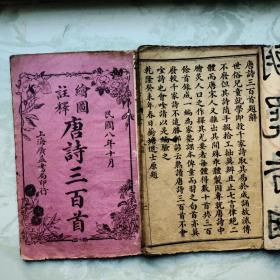 民國八年十月
繪圖
註釋
唐詩三百首
上海廣益書局印行
唐詩三百首題辭
世俗兒童就學即授千家詩取其易於成誦故流傳
不廢但其詩隨手掇拾工拙莫辨且止七言律絕二
體而唐宋人又雜出其間殊乖體製因專就唐詩中
膾炙人口之作擇其尤要者每體得數十首共三百
餘首錄成一編為家塾課本俾童而習之白首亦莫
能廢較千家詩不遠勝耶諺云熟讀唐詩三百首不會
吟詩也會吟請以是編驗之
乾隆癸未年春日蘅塘退士題